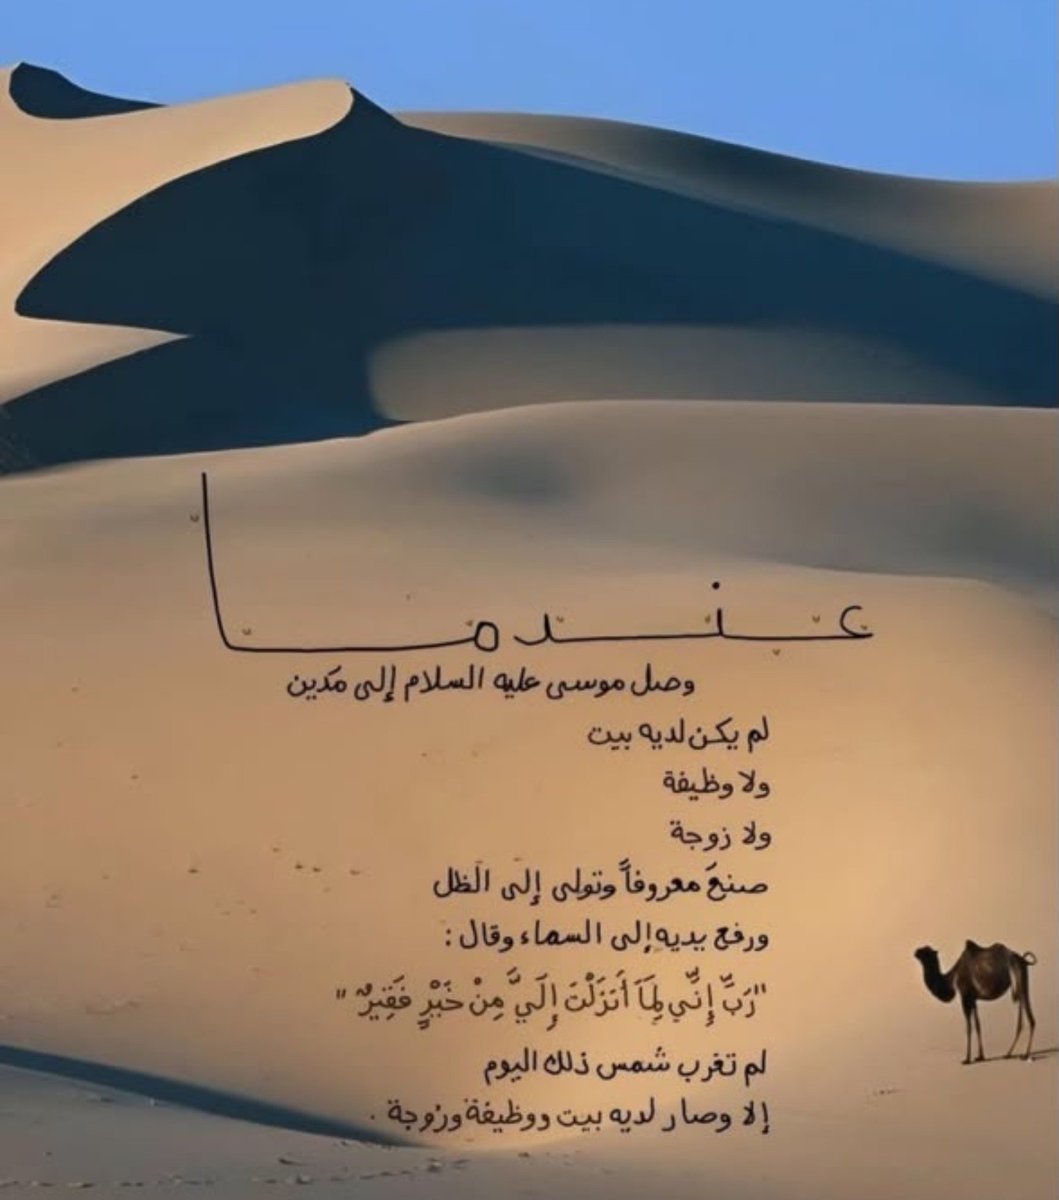 عندما
وصل موسى عليه السلام إلى مَدين
لم يكن لديه بيت
ولا وظيفة
ولا زوجة
صنعَ معروفاً وتولى إلى الظل
ورفع يديه إلى السماء وقال :
"رَبِّ إِنِّي لِمَا أَنزَلْتَ إِلَيَّ مِنْ خَيْرٍ فَقِيرٌ"
لم تغرب شمس ذلك اليوم
إلا وصار لديه بيت ووظيفة وزوجة .